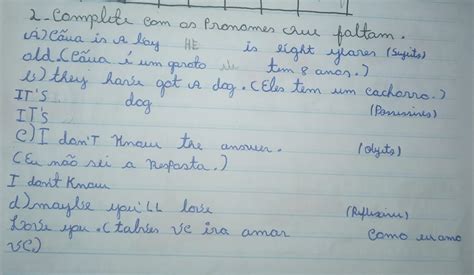 2_ Complete com os Pronomes que faltam.
A) Cauã is A boy HE is eight yeares (Sujeito)
old. (Cauã é um garoto tem 8 anos.)
b) they have got A dog. (Eles tem um cachorro.)
IT'S dog (Possessives)
IT's
C) I don't Know the answer. (objeto)
(Eu não sei a Resposta.)
I don't Know
d) maybe you'LL love (Reflexive)
Love you. (talves vc ira amar como eu amo
VC.)